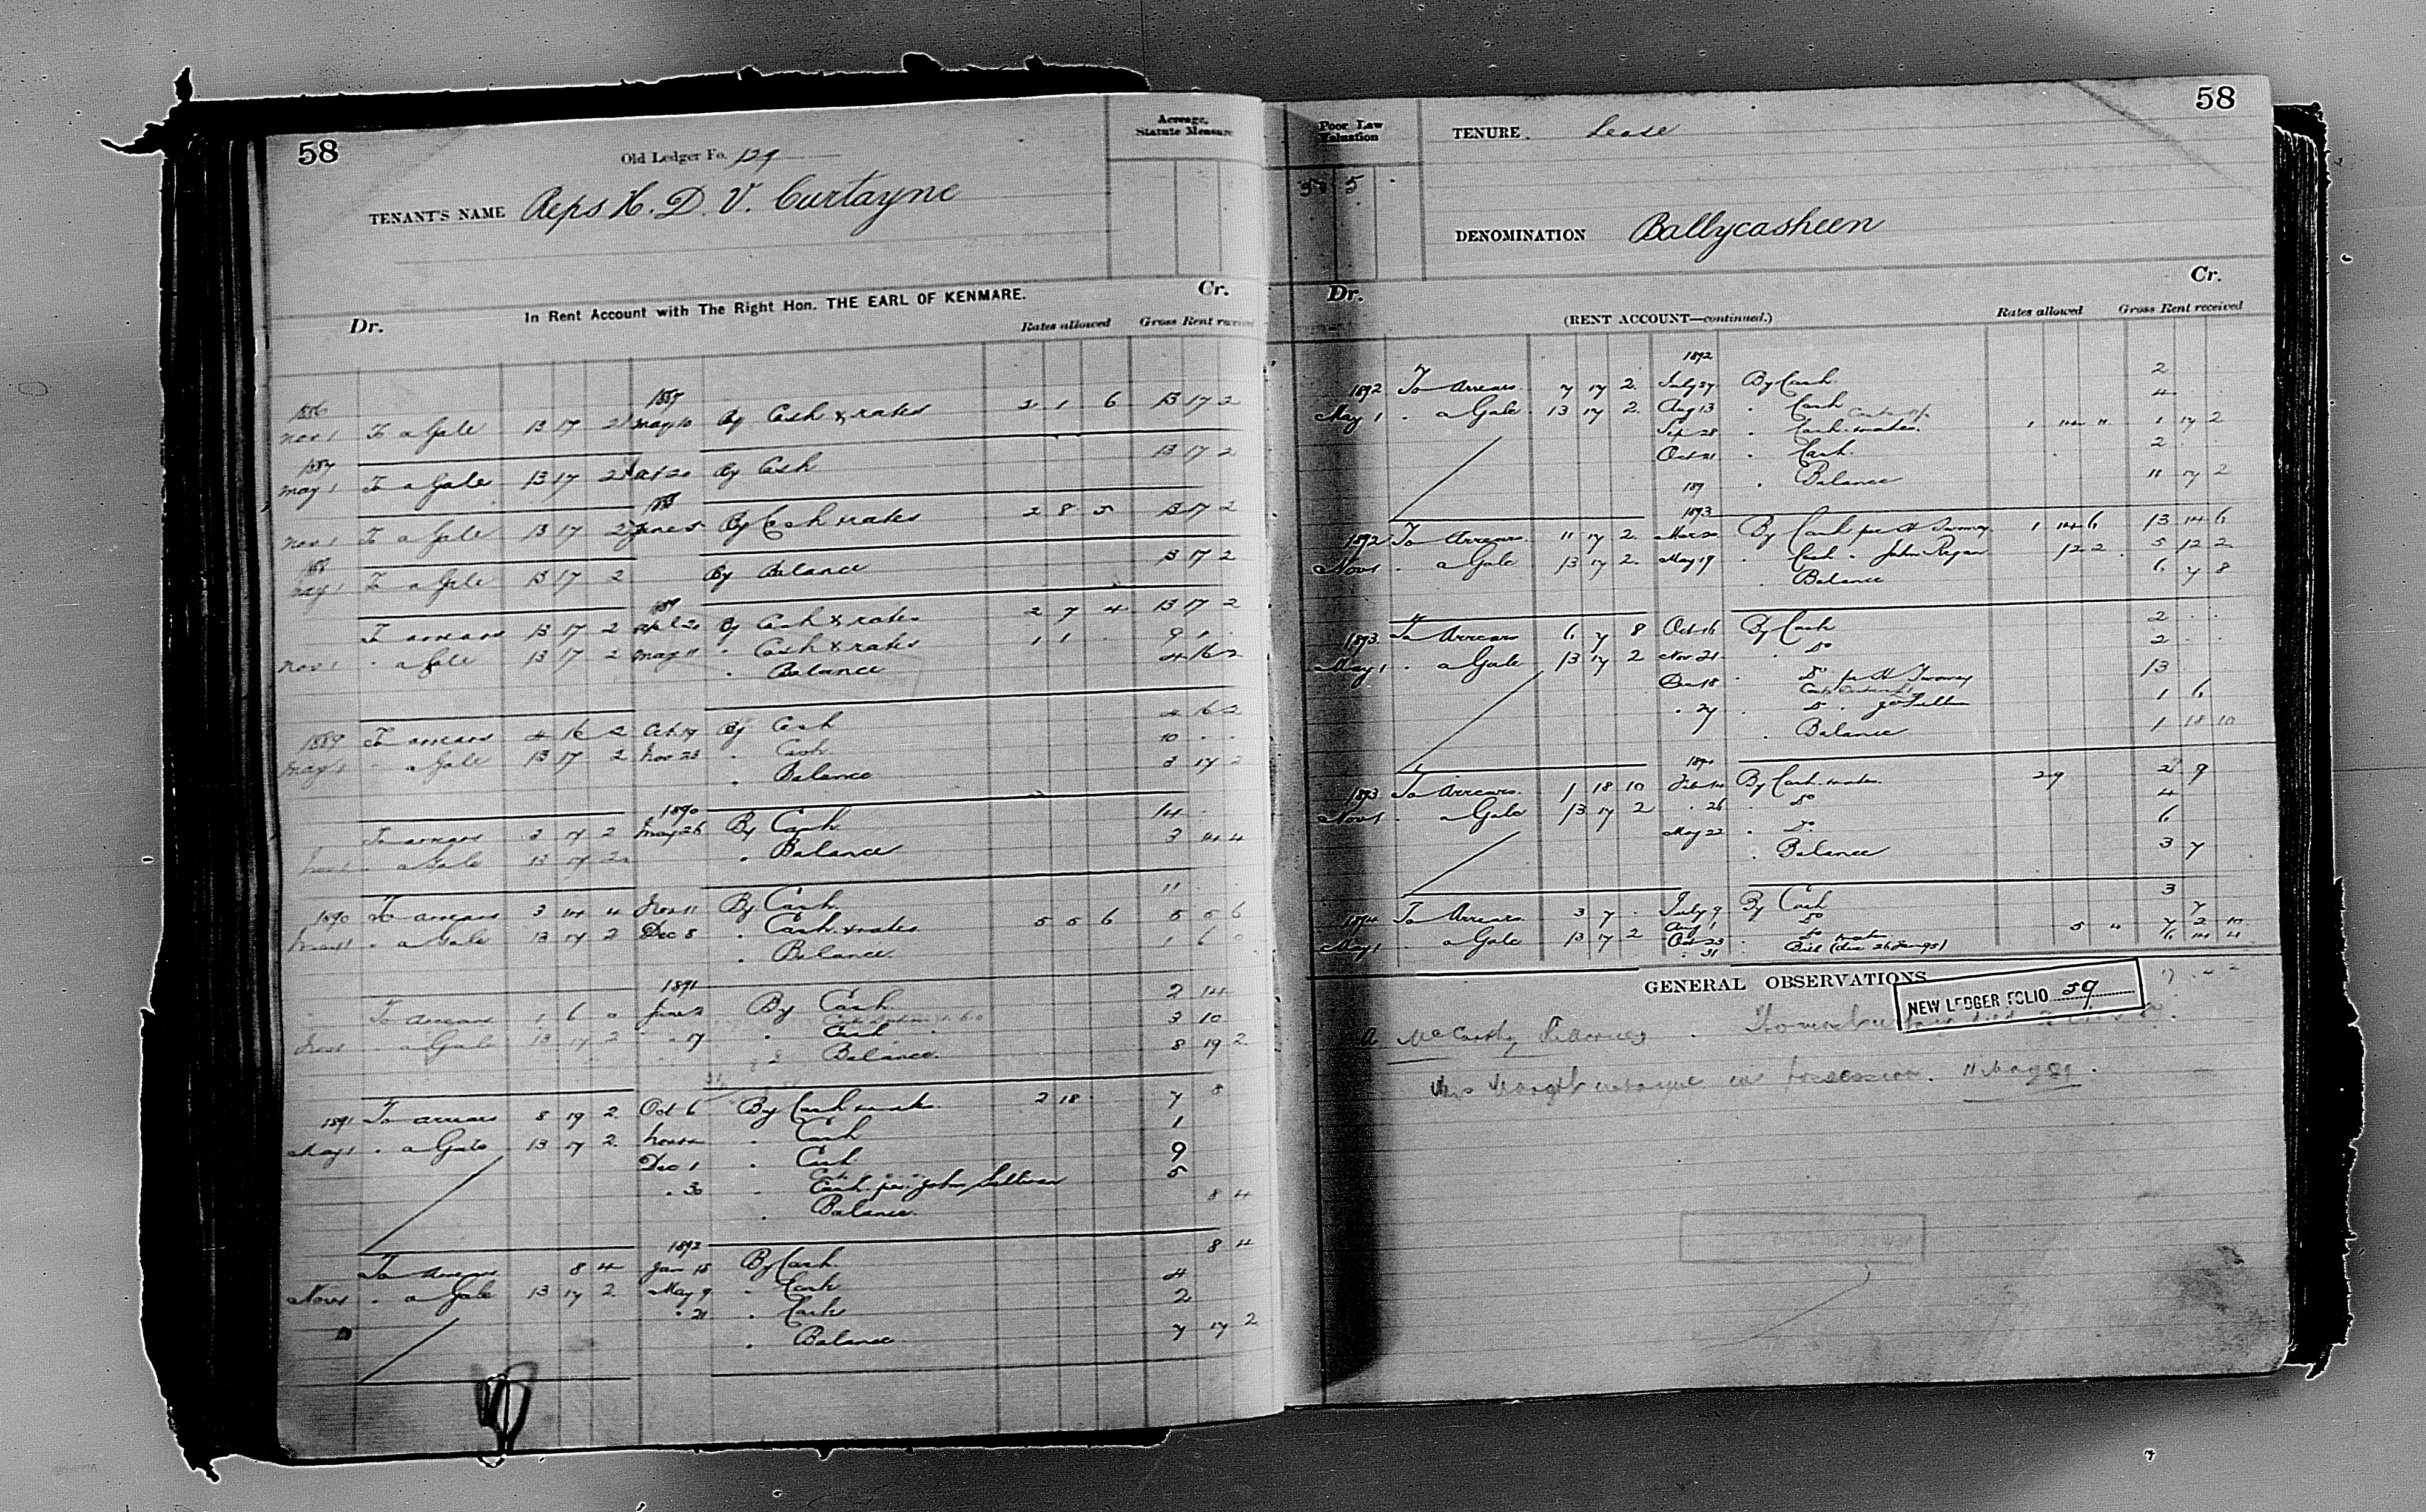 58
Old Ledger Fo. 129
Acreage, Statute Measure
TENANT'S NAME Reps H. D. V. Curtayne
In Rent Account with The Right Hon. THE EARL OF KENMARE.
Dr. Cr.
Rates allowed Gross Rent received
1886 1887
Nov 1 To a Gale 13 17 2 May 10 By Cash & rates 2 1 6 13 17 2
1887
May 1 To a Gale 13 17 2 Oct 20 By Cash 13 17 2
1888
Nov 1 To a Gale 13 17 2 June 5 By Cash & rates 2 8 5 13 17 2
1888
May 1 To a Gale 13 17 2 By Balance 13 17 2
1889
To arrears 13 17 2 April 20 By Cash & rates 2 7 4 13 17 2
Nov 1 " a Gale 13 17 2 May 11 " Cash & rates 1 1 9 1 .
" Balance 4 16 2
1889 To arrears 4 16 2 Oct 17 By Cash 4 16 2
May 1 " a Gale 13 17 2 Nov 23 " Cash 10 . .
" Balance 3 17 2
1890
To arrears 3 17 2 May 26 By Cash 14 .
Nov 1 " a Gale 13 17 2 " Balance 3 14 4
1890 To arrears 3 14 4 Nov 11 By Cash 11 . .
May 1 " a Gale 13 17 2 Dec 8 " Cash & rates 5 5 6 5 5 6
" Balance 1 6 0
1891
To arrears 1 6 0 June 2 By Cash 2 14
Nov 1 " a Gale 13 17 2 " 17 " Cash 3 10
" Balance 8 19 2
1891 To arrears 8 19 2 Oct 6 By Cash & rates 2 18 7 8
May 1 " a Gale 13 17 2 " Cash 1
Dec 1 " Cash 9
" 30 " Cash per John Sullivan 5
" Balance 8 4
1892
To Arrears 8 4 Jan 15 By Cash 8 4
Nov 1 " a Gale 13 17 2 May 9 " Cash 4
" 21 " Cash 2
" Balance 7 17 2
58
Poor Law Valuation
TENURE. Lease
5
DENOMINATION Ballycasheen
Dr. Cr.
(RENT ACCOUNT—continued.)
Rates allowed Gross Rent received
1892
1892 To Arrears 7 17 2 July 27 By Cash 2
May 1 " a Gale 13 17 2 Aug 13 " Cash 4
Sep 28 " Cash & rates 1 14 11 1 17 2
Oct 21 " Cash 2 . .
189 " Balance 11 17 2
1893
1892 To Arrears 11 17 2 Mar 20 By Cash per H Twomey 1 14 6 13 14 6
Nov 1 " a Gale 13 17 2 May 19 " Cash " John Regan 12 2 5 12 2
" Balance 6 7 8
1893 To Arrears 6 7 8 Oct 16 By Cash 2 . .
May 1 " a Gale 13 17 2 Nov 21 " Do 2 . .
Dec 18 " Do per H Twomey 13
" 27 " Do " 1 6
" Balance 1 18 10
1894
1893 To Arrears 1 18 10 Feb 14 By Cash & rates 2 9 2 9
Nov 1 " a Gale 13 17 2 " 26 " Do 4
May 22 " Do 6
" Balance 3 7
1894 To Arrears 3 7 . July 9 By Cash 3
May 1 " a Gale 13 17 2 Aug 1 " Do 7
Oct 23 " Do & rates 5 11 7 2 10
" 31 " Bill (due 26 Jan 95) 14 4
GENERAL OBSERVATIONS
NEW LEDGER FOLIO 59
McCarthy
in possession. 11 May 89.